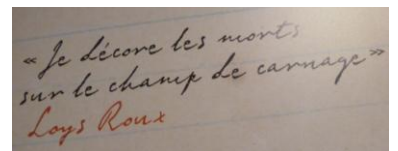 « Je décore les morts
sur le champ de carnage »
Loys Roux